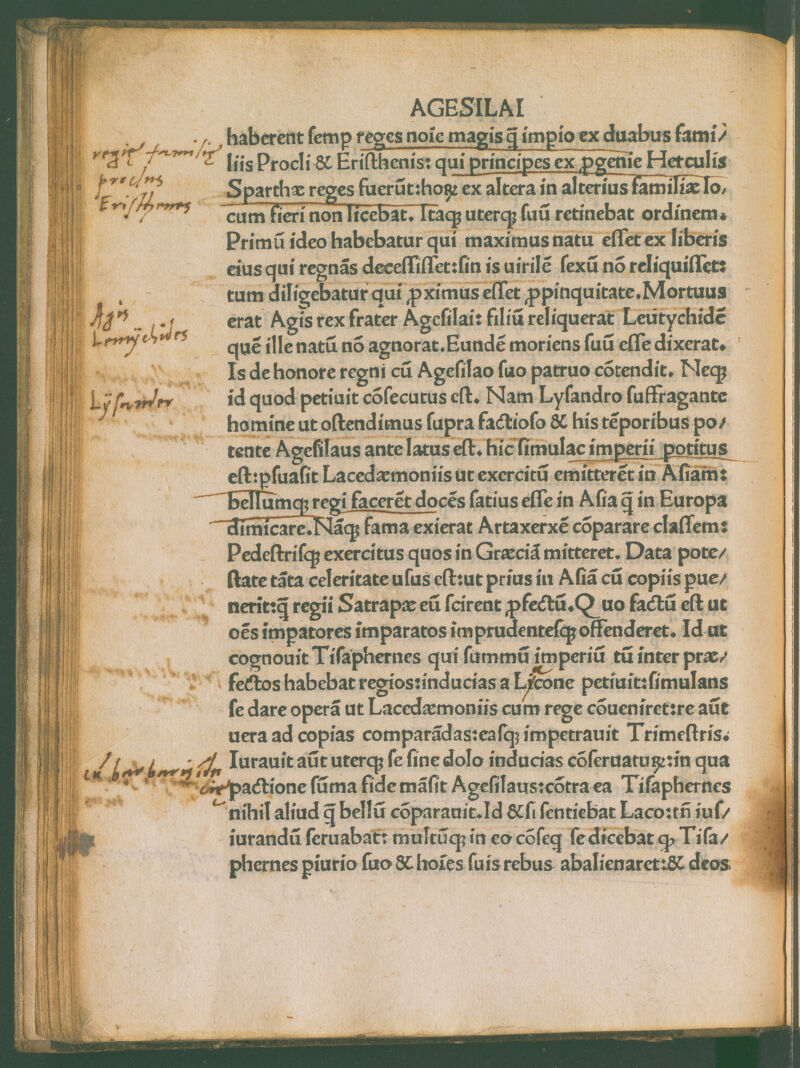 AGESILAI
haberent ſemp reges noīe magis q̄ impio ex duabus fami/
liis Procli & Eriſthenis: qui principes ex ꝓgenie Herculis
Sparthæ reges fuerūt:hoꝝ ex altera in alterius familiæ lo/
cum fieri non licebat. Itaqꝫ uterqꝫ ſuū retinebat ordinem.
Primū ideo habebatur qui maximus natu eſſet ex liberis
eius qui regnās deceſſiſſet:ſin is uirilē ſexū nō reliquiſſet:
tum diligebatur qui ꝓximus eſſet ꝓpinquitate.Mortuus
erat Agis rex frater Ageſilai: filiū reliquerat Leutychidē
quē ille natū nō agnorat.Eundē moriens ſuū eſſe dixerat.
Is de honore regni cū Ageſilao ſuo patruo cōtendit. Neqꝫ
id quod petiuit cōſecutus eſt. Nam Lyſandro ſuffragante
homine ut oſtendimus ſupra factioſo & his tēporibus po/
tente Ageſilaus ante latus eſt. hic ſimulac imperii potitus
eſt:pſuaſit Lacedæmoniis ut exercitū emitterēt in Aſiam:
bellumqꝫ regi facerēt docēs ſatius eſſe in Aſia q̄ in Europa
dimicare.Nāqꝫ fama exierat Artaxerxē cōparare claſſem:
Pedeſtriſqꝫ exercitus quos in Græciā mitteret. Data pote/
ſtate tāta celeritate uſus eſt:ut prius in Aſiā cū copiis pue/
nerit:q̄ regii Satrapæ eū ſcirent ꝓfectū.Q uo factū eſt ut
oēs impatores imparatos imprudenteſqꝫ offenderet. Id ut
cognouit Tiſaphernes qui ſummū imperiū tū inter præ/
fectos habebat regios:inducias a Licone petiuit:ſimulans
ſe dare operā ut Lacedæmoniis cum rege cōueniret:re aūt
uera ad copias comparādas:eaſqꝫ impetrauit Trimeſtris.
Iurauit aūt uterqꝫ ſe ſine dolo inducias cōſeruatuꝝ:in qua
pactione ſūma fide māſit Ageſilaus:cōtra ea Tiſaphernes
nihil aliud q̄ bellū cōparauit.Id &ſi ſentiebat Laco:tn̄ iuſ/
iurandū ſeruabat: multūqꝫ in eo cōſeq ſe dicebat ꝙ Tiſa/
phernes piurio ſuo & hoīes ſuis rebus abalienaret:& deos
regię familię
proclus
Eristhenes
Agis
Leutychides
Lysander